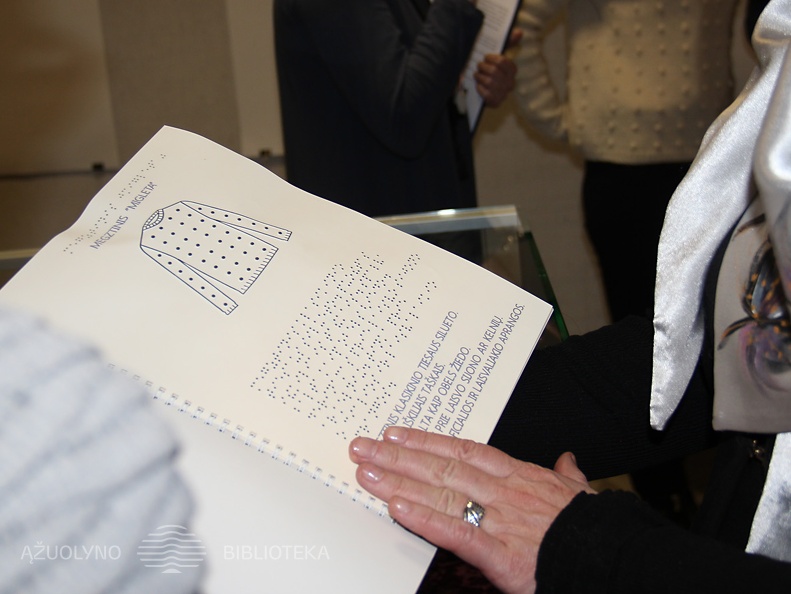 MEGZTINIS "MIGLETA"
KLASIKINIO TIESAUS SILUETO.
IŠKILIAIS TAŠKAIS.
KAIP OBELS ŽIEDO.
PRIE LAISVO SIJONO AR KELNIŲ.
OFICIALIOS IR LAISVALAIKIO APRANGOS.
AŽUOLYNO BIBLIOTEKA